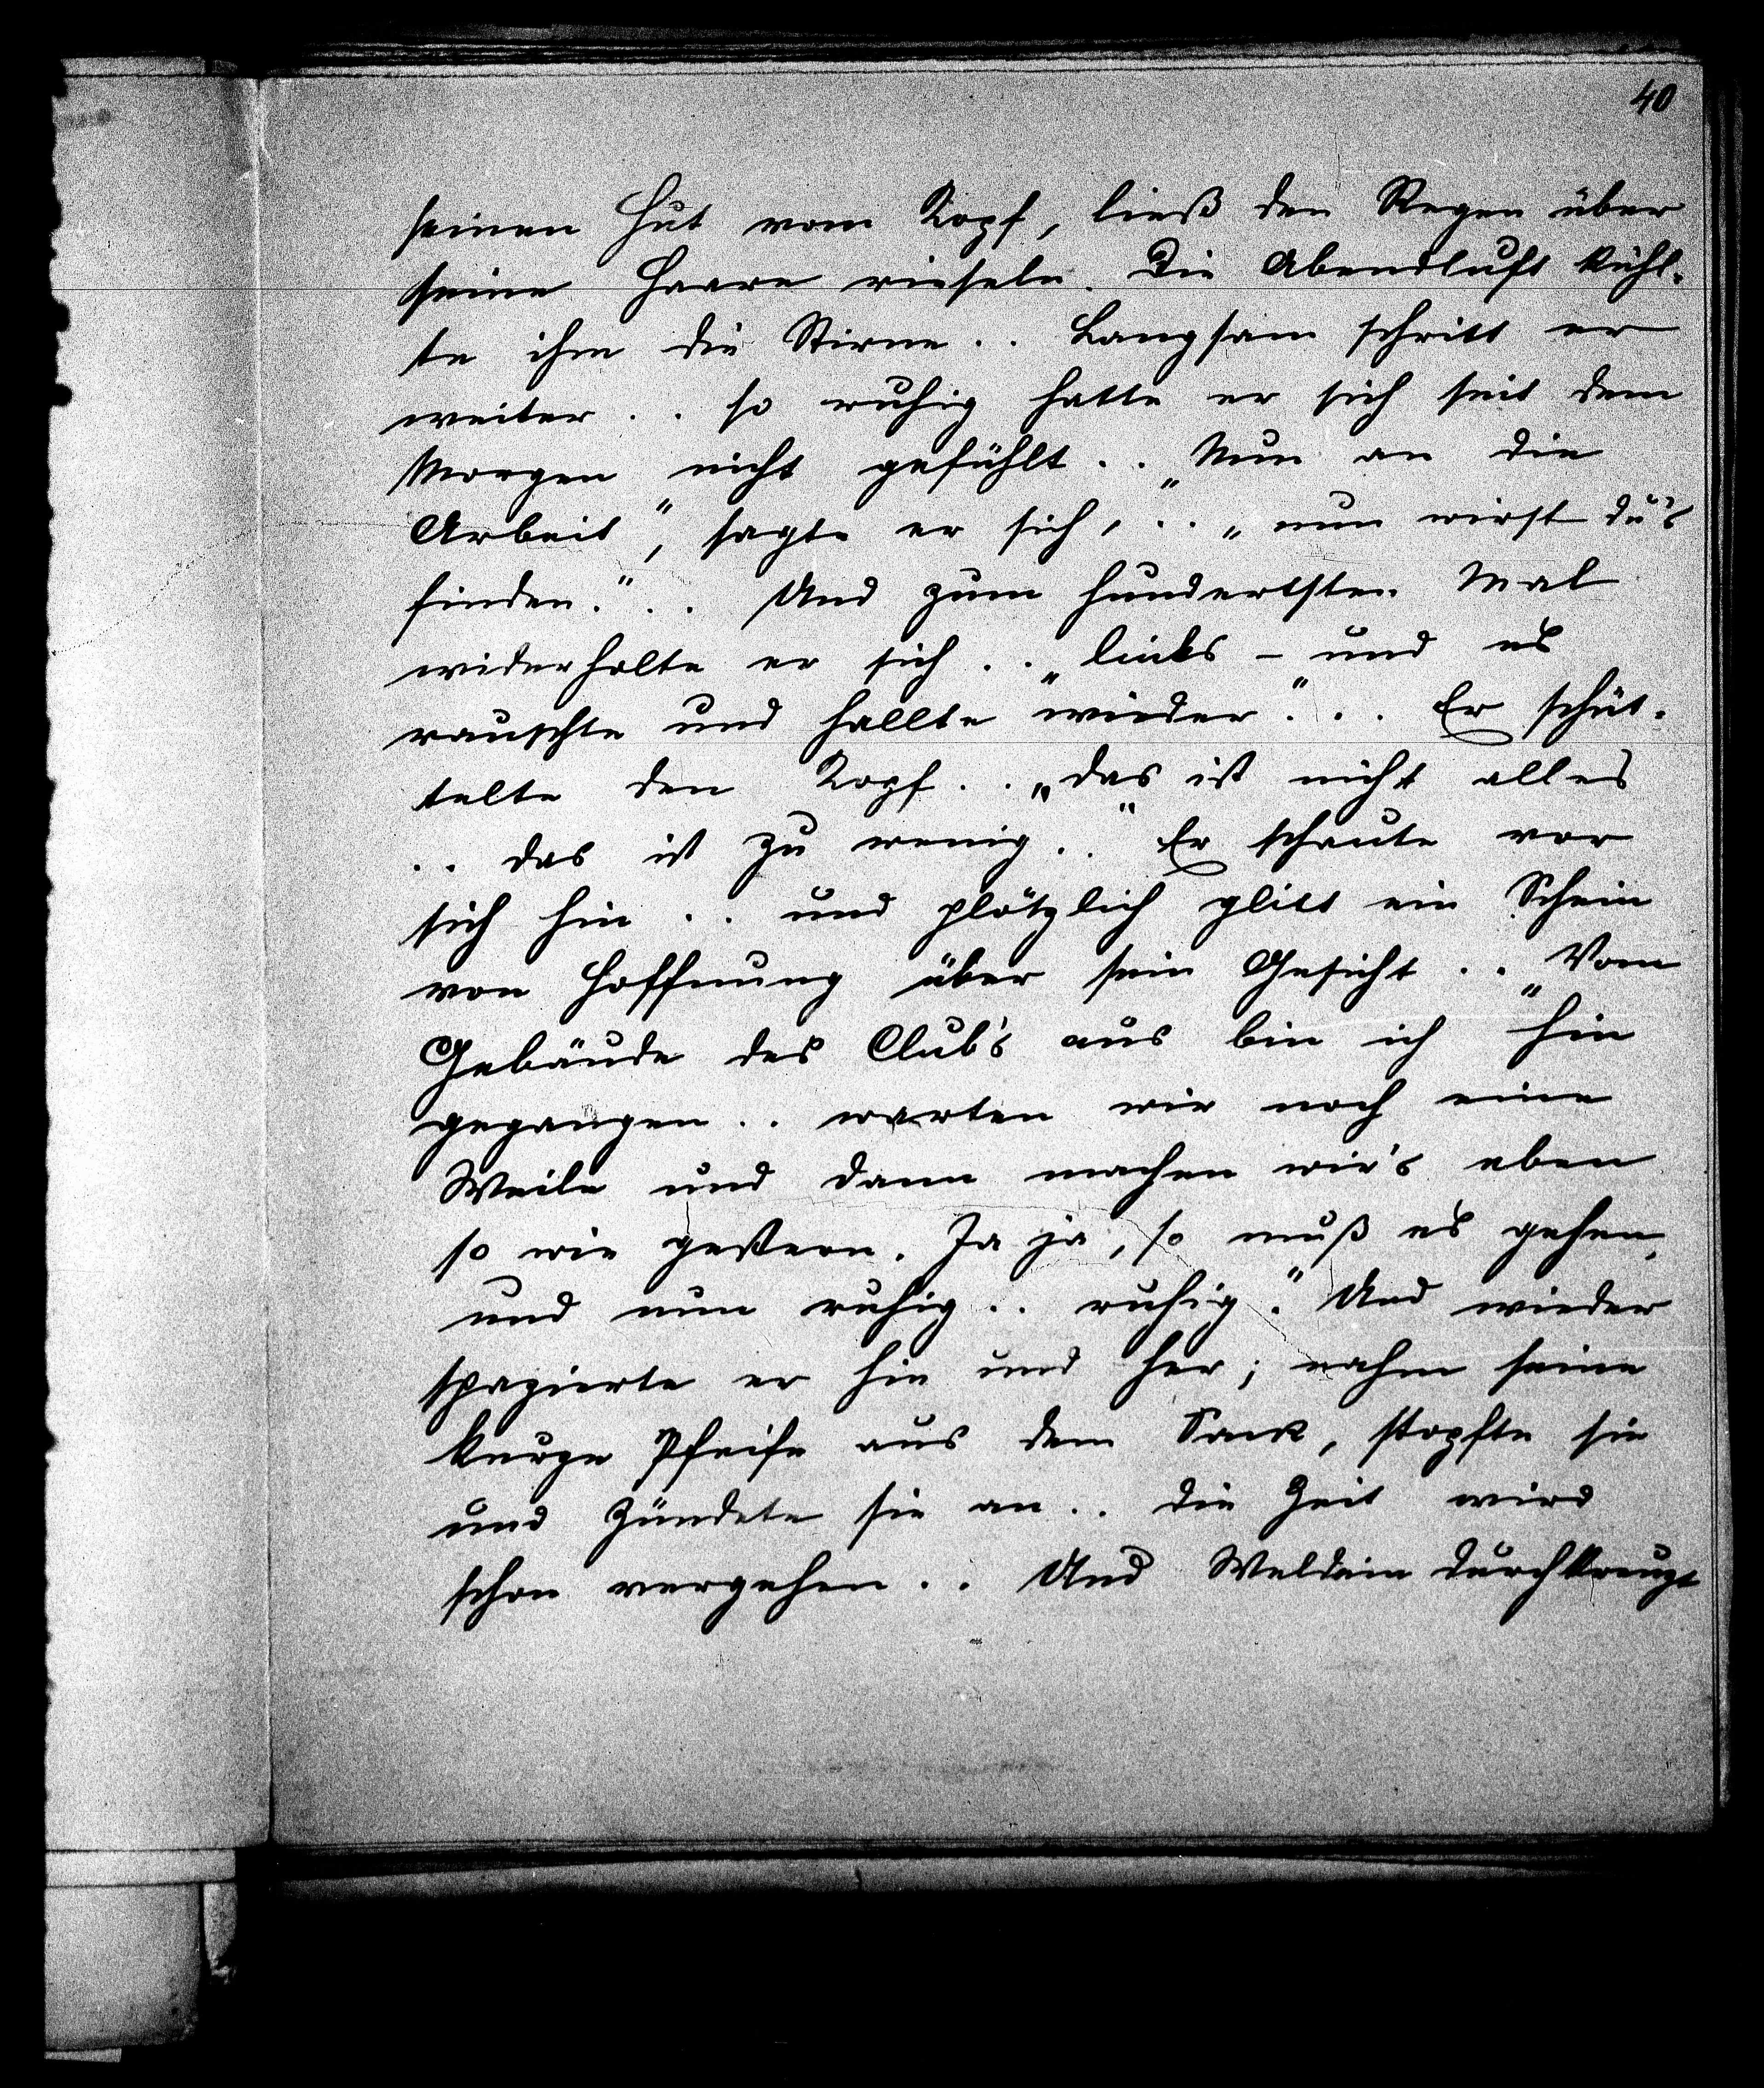 40
seinen Hut vom Kopf, ließ den Regen über
seine Haare rieseln. Die Abendluft kühl-
te ihm die Stirne .. Langsam schritt er
weiter .. so ruhig hatte er sich seit dem
Morgen nicht gefühlt .. „Nun an die
Arbeit", sagte er sich, .. „nun wirst du's
finden." .. Und zum hundertsten Mal
widerholte er sich .. „links – und es
rauschte und hallte wieder." .. Er schüt-
telte den Kopf .. „das ist nicht alles
.. das ist zu wenig .." Er schaute vor
sich hin .. und plötzlich glitt ein Schein
von Hoffnung über sein Gesicht .. „Vom
Gebäude des Club's aus bin ich hin
gegangen .. warten wir noch eine
Weile und dann machen wir's eben
so wie gestern. Ja ja, so muß es gehen,
und nun ruhig .. ruhig." Und wieder
spazierte er hin und her; nahm seine
kurze Pfeife aus dem Sack, stopfte sie
und zündete sie an .. die Zeit wird
schon vergehen .. Und Weldein durchkreuzt